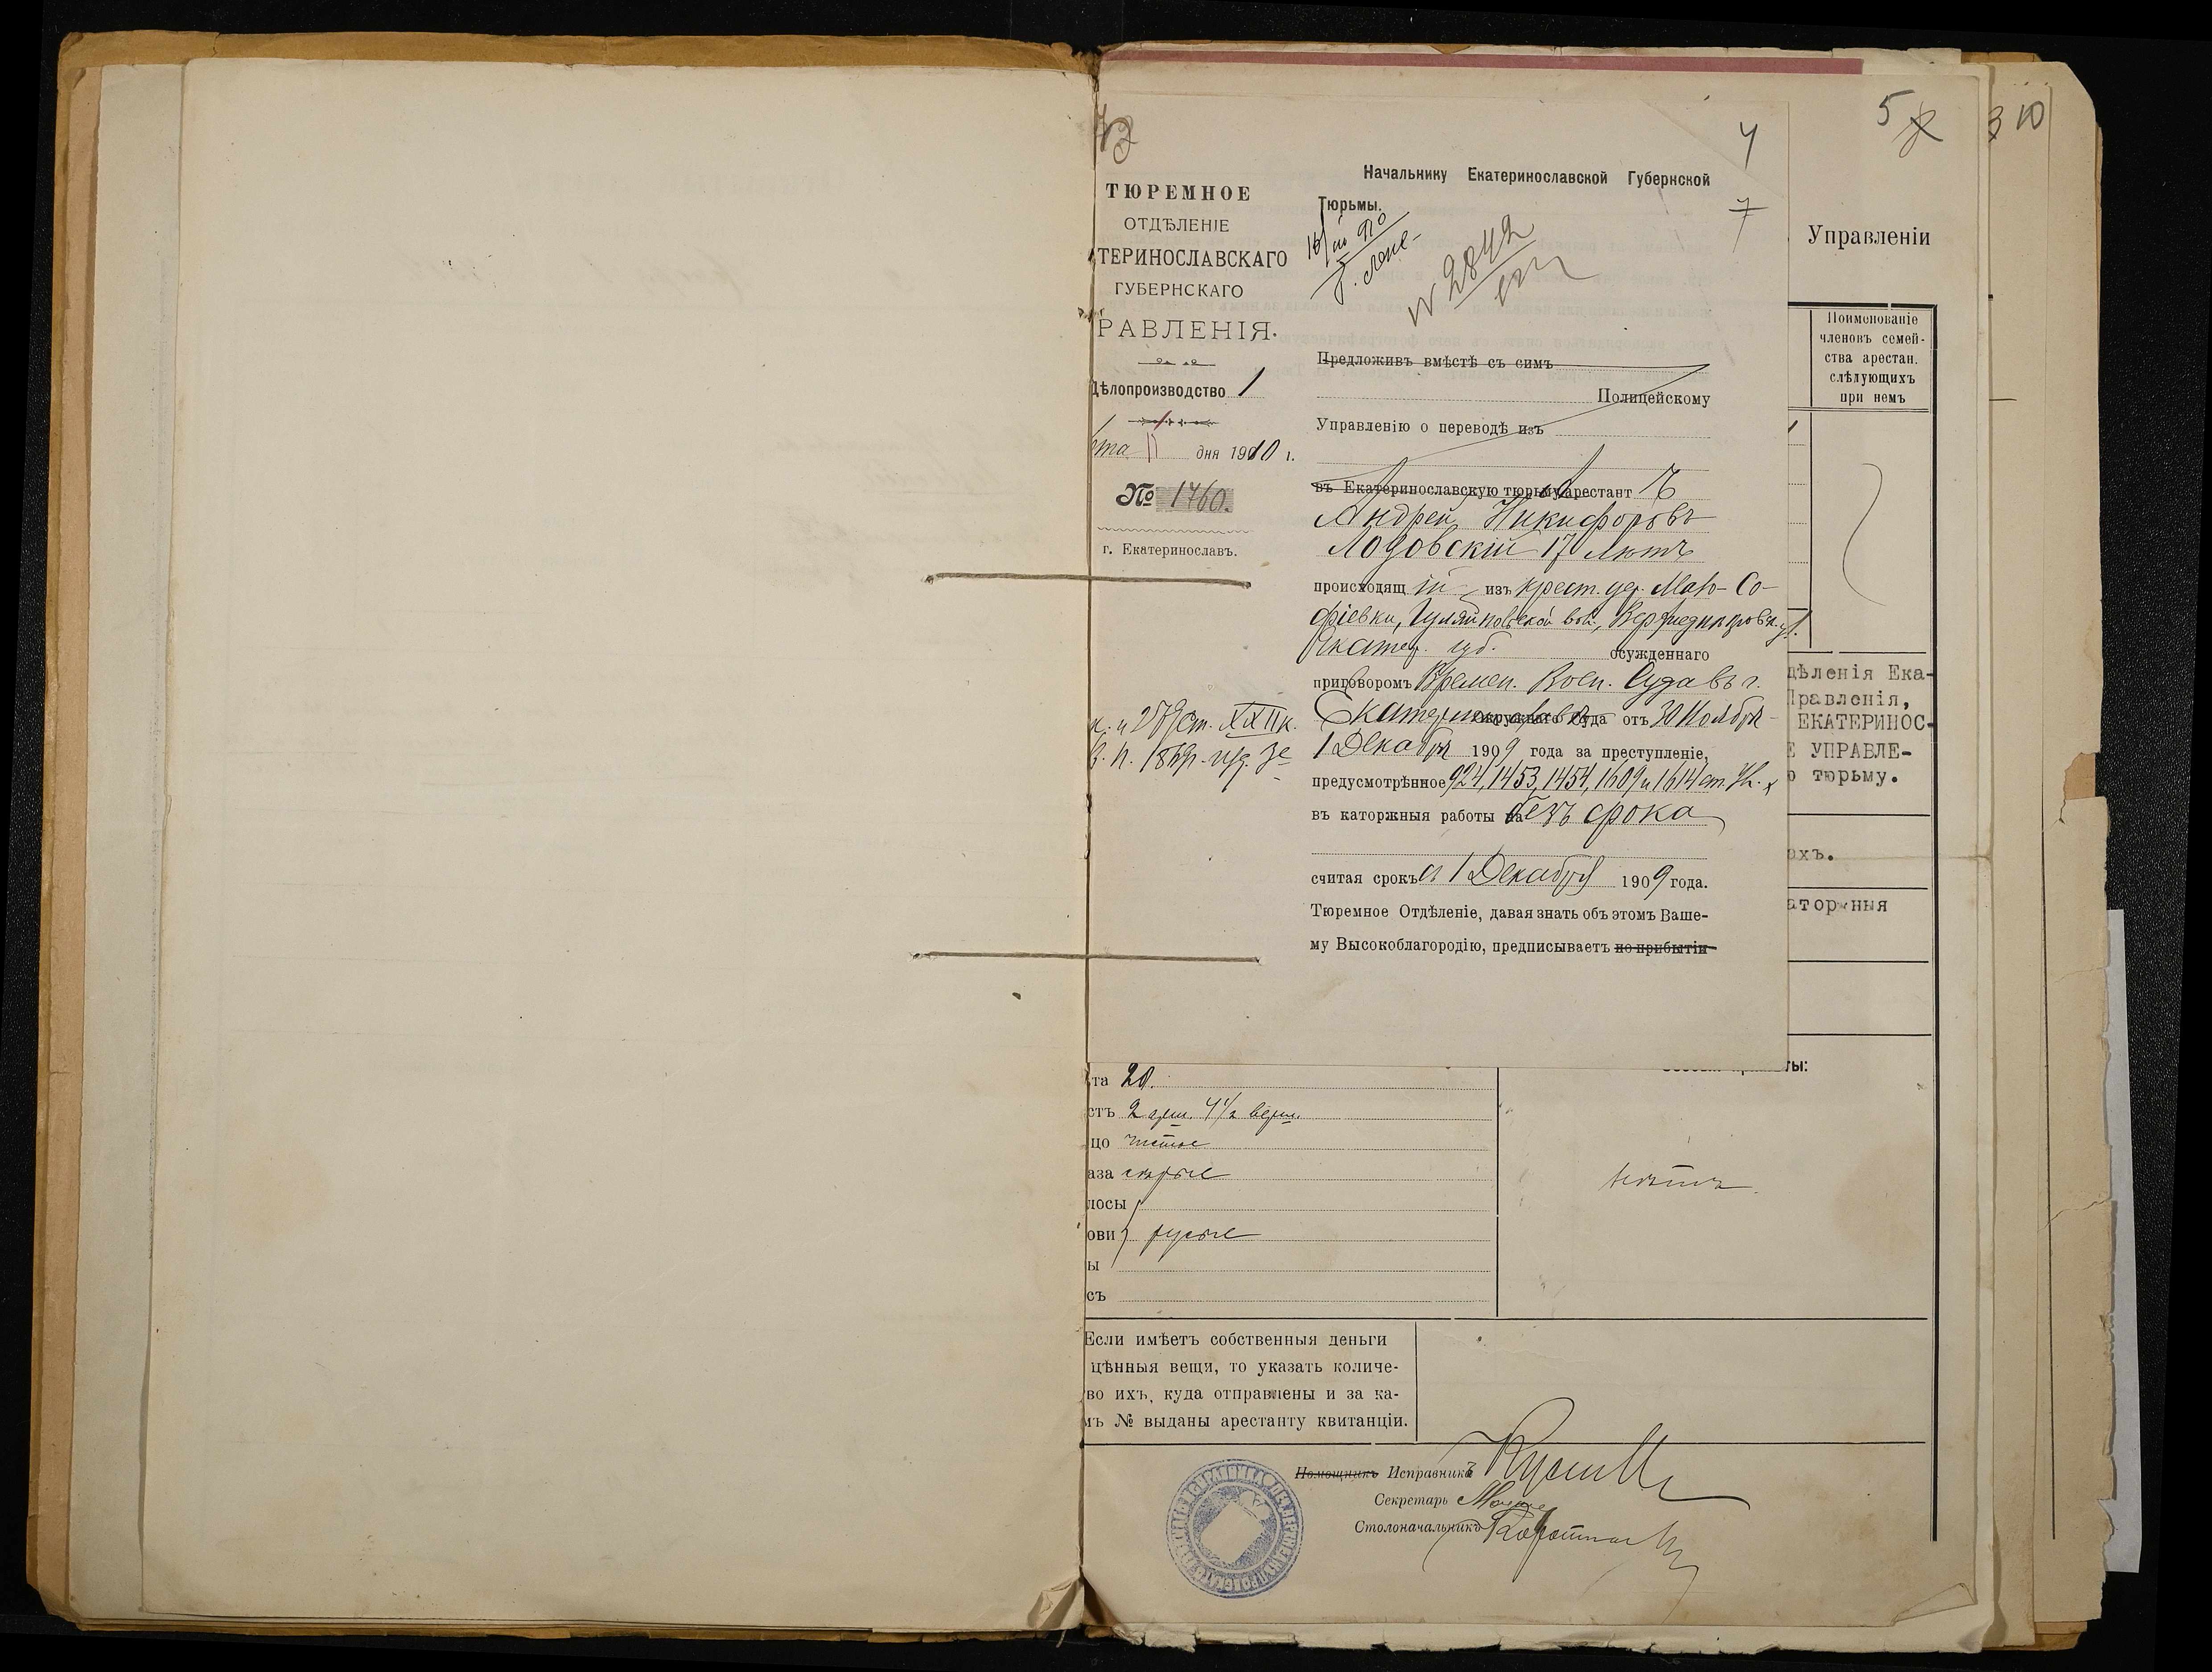 4
7
5
3 10
ТЮРЕМНОЕ
ОТДѢЛЕНІЕ
ТЕРИНОСЛАВСКАГО
ГУБЕРНСКАГО
РАВЛЕНІЯ.
Дѣлопроизводство 1
рта 11 дня 1910 г.
№ 1760.
г. Екатеринославъ.
и 279 ст. XXII к.
В. П. 1869 г. изд. 3е
Начальнику Екатеринославской Губернской
Тюрьмы.
№ 2842
Предложивъ вмѣстѣ съ симъ
Полицейскому
Управленію о переводѣ изъ
въ Екатеринославскую тюрьму арестант ъ
Андрей Никифоровъ
Лозовскій 17 лѣтъ
происходящ ій изъ крест. дер. Мало-Со-
фіевки, Гуляйпольской вол., Верхнеднѣпровск. у.
Екатер. губ. осужденнаго
приговоромъ Времен. Воен. Суда въ г.
Екатеринославѣ Окружнаго Суда отъ 30 Ноября-
1 Декабря 1909 года за преступленіе,
предусмотрѣнное 924, 1453, 1454, 1609 и 1614 ст. Ул. х
въ каторжныя работы на безъ срока
считая срокъ съ 1 Декабря 1909 года.
Тюремное Отдѣленіе, давая знать объ этомъ Ваше-
му Высокоблагородію, предписываетъ по прибытіи
Управленіи
Поименованіе
членовъ семей-
ства арестан.
слѣдующихъ
при немъ
дѣленія Ека-
Правленія,
ЕКАТЕРИНОС-
Е УПРАВЛЕ-
ю тюрьму.
ахъ.
аторжныя
ты:
та 20.
стъ 2 арш. 4 1/2 верш.
цо чистое
аза сѣрые
лосы
ови русые
ы
съ
нѣтъ
Если имѣетъ собственныя деньги
цѣнныя вещи, то указать количе-
во ихъ, куда отправлены и за ка-
мъ № выданы арестанту квитанціи.
Помощникъ Исправникъ
Секретарь
Столоначальникъ